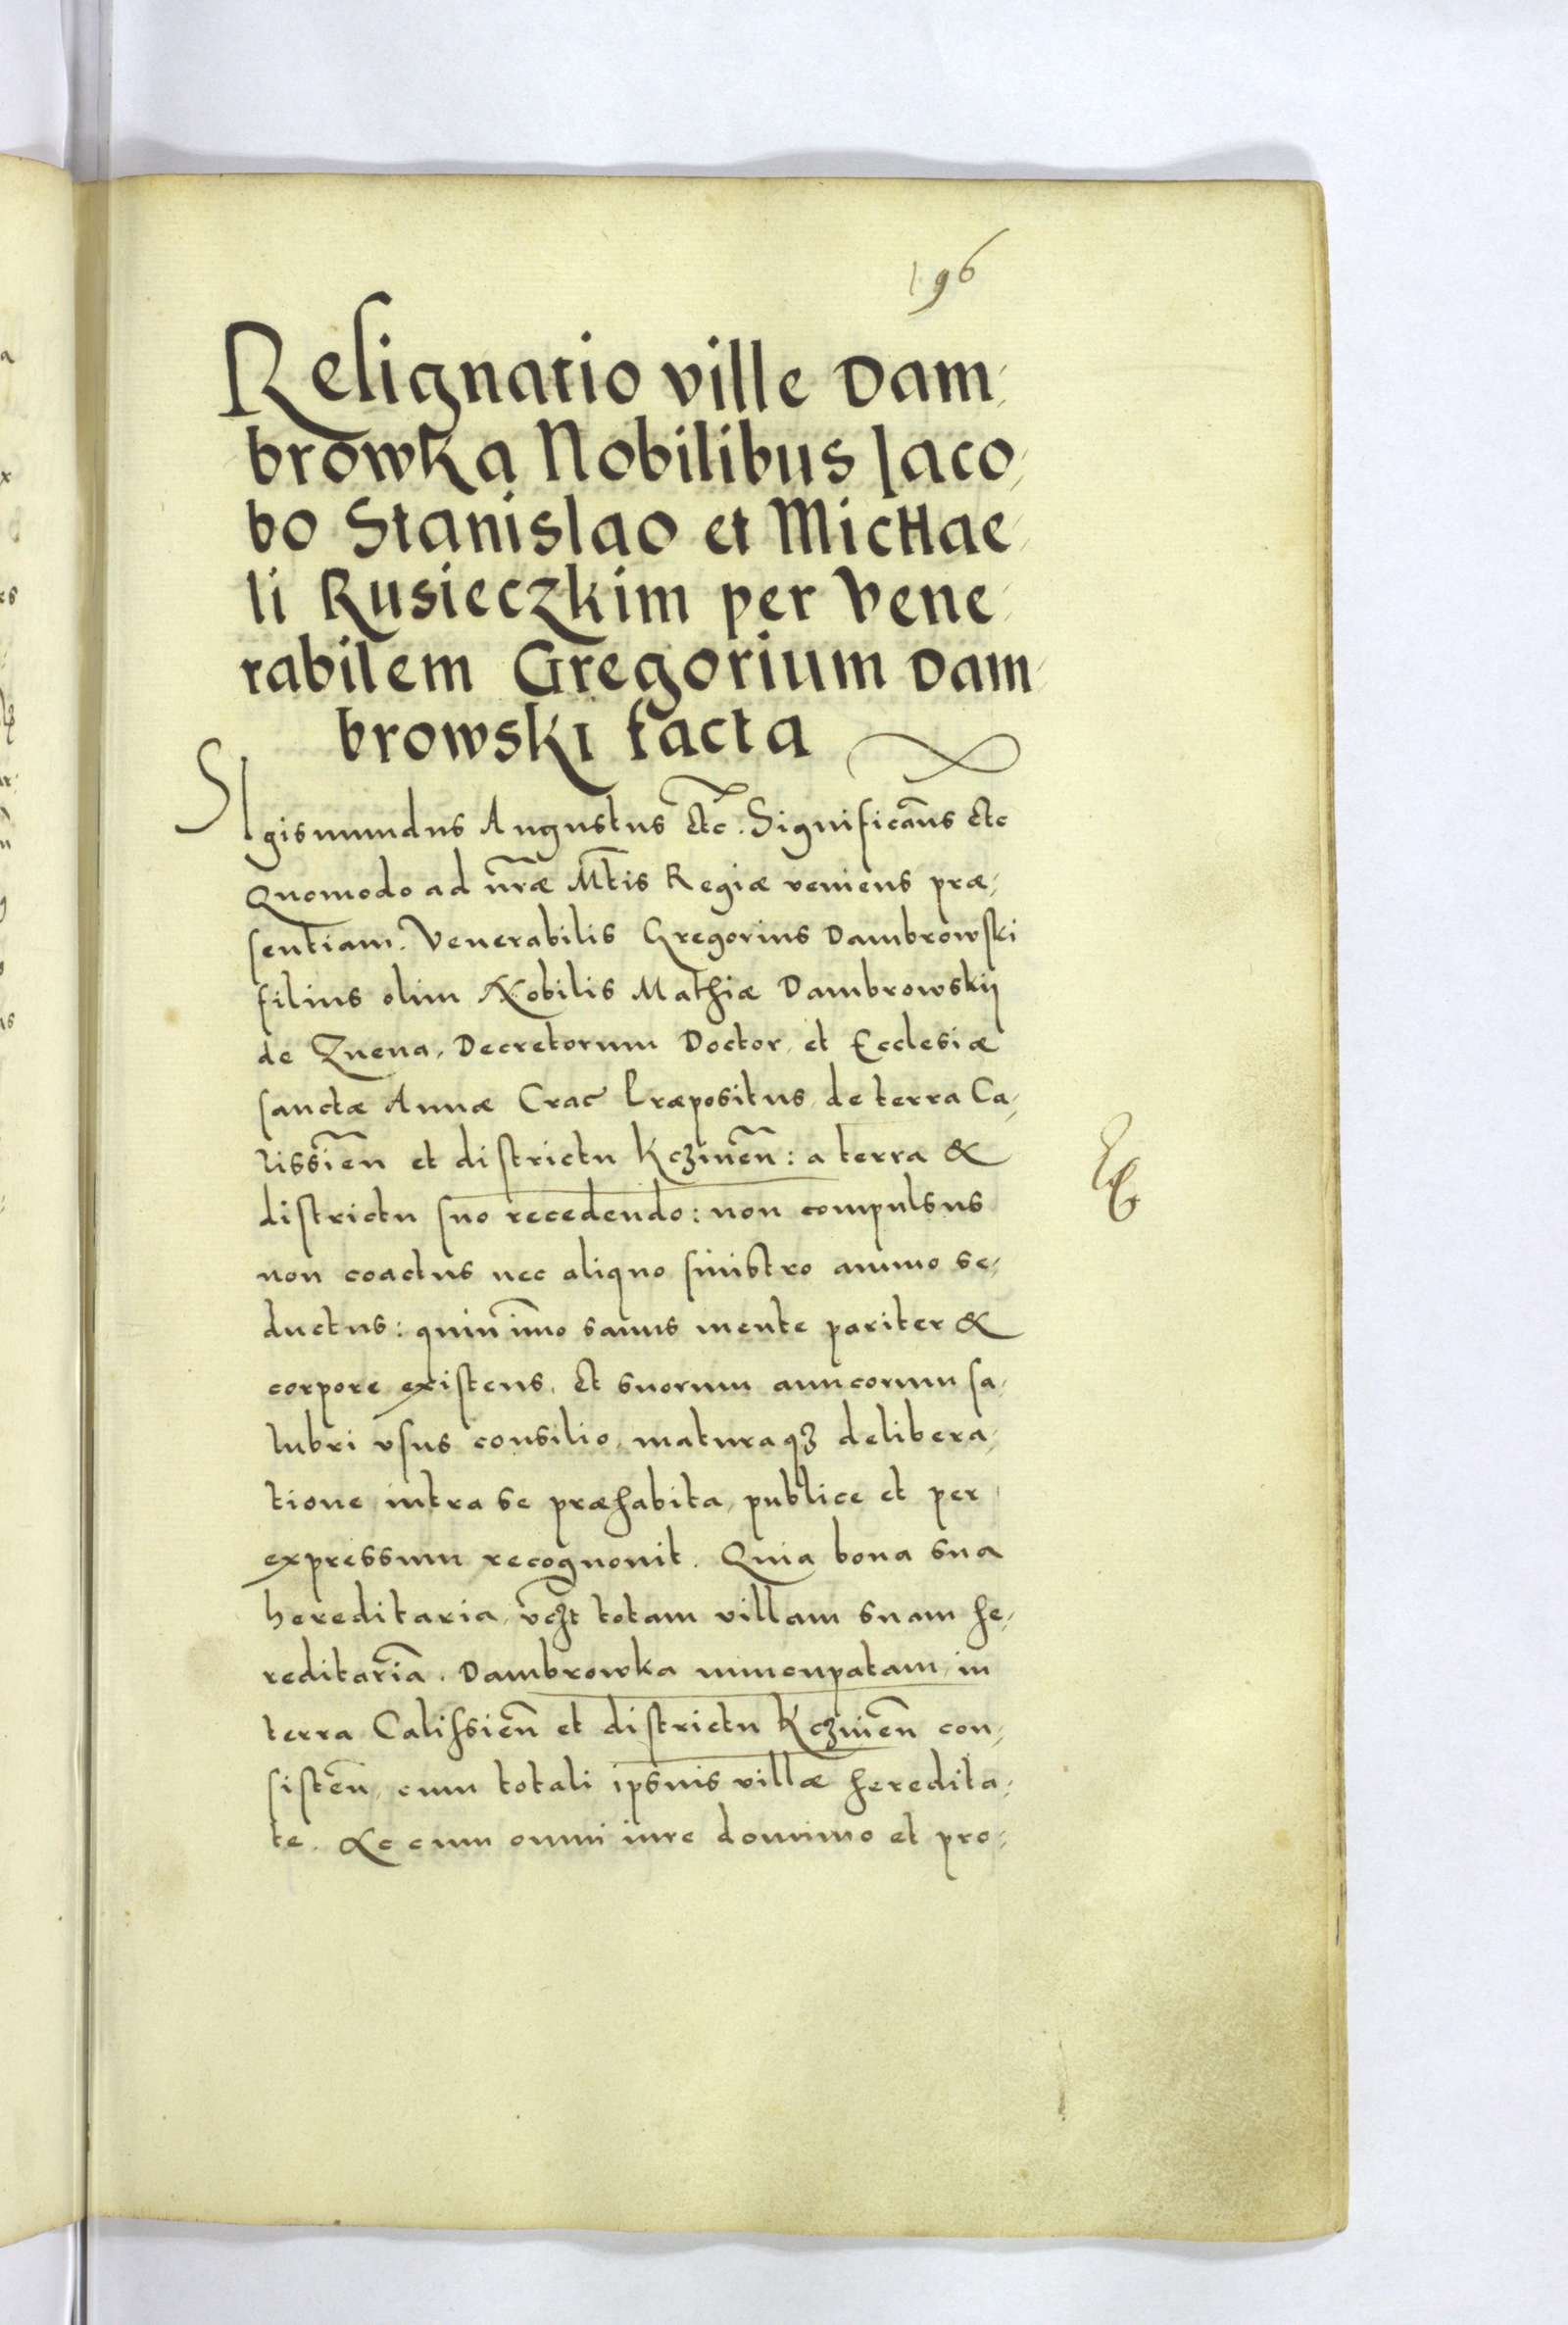 196
Resignatio ville Dam-
browka Nobilibus Jaco-
bo Stanislao et Michae-
li Rusieczkim per Vene-
rabilem Gregorium Dam-
browski facta
SIgismundus Augustus Etc̄. Significām̄us Etc
Quomodo ad n̄ræ M̄tis Regiæ veniens præ-
sentiam. Venerabilis Gregorius Dambrowski
filius olim Nobilis Mathiæ Dambrowskij
de Znena, Decretorum Doctor, et Ecclesiæ
sanctæ Annæ Crac̄ Præpositus, de terra Ca-
lissien̄ et districtu Kczinen̄: a terra &
districtu suo recedendo: non compulsus
non coactus nec aliquo sinistro animo se-
ductus: quin im̄o sanus mente pariter &
corpore existens, Et suorum amicorum sa-
lubri vsus consilio, maturaqꝫ delibera-
tione intra se præhabita, publice et per
expressum recognovit. Quia bona sua
hereditaria, vꝫt totam villam suam he-
reditariā. Dambrowka nuncupatam, in
terra Calissien̄ et districtu Kcznen̄ con-
sisten̄, cum totali ipsius villæ heredita-
te. Ac cum omni iure dominio et pro-